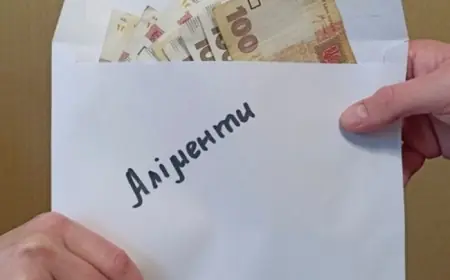 100
Аліменти